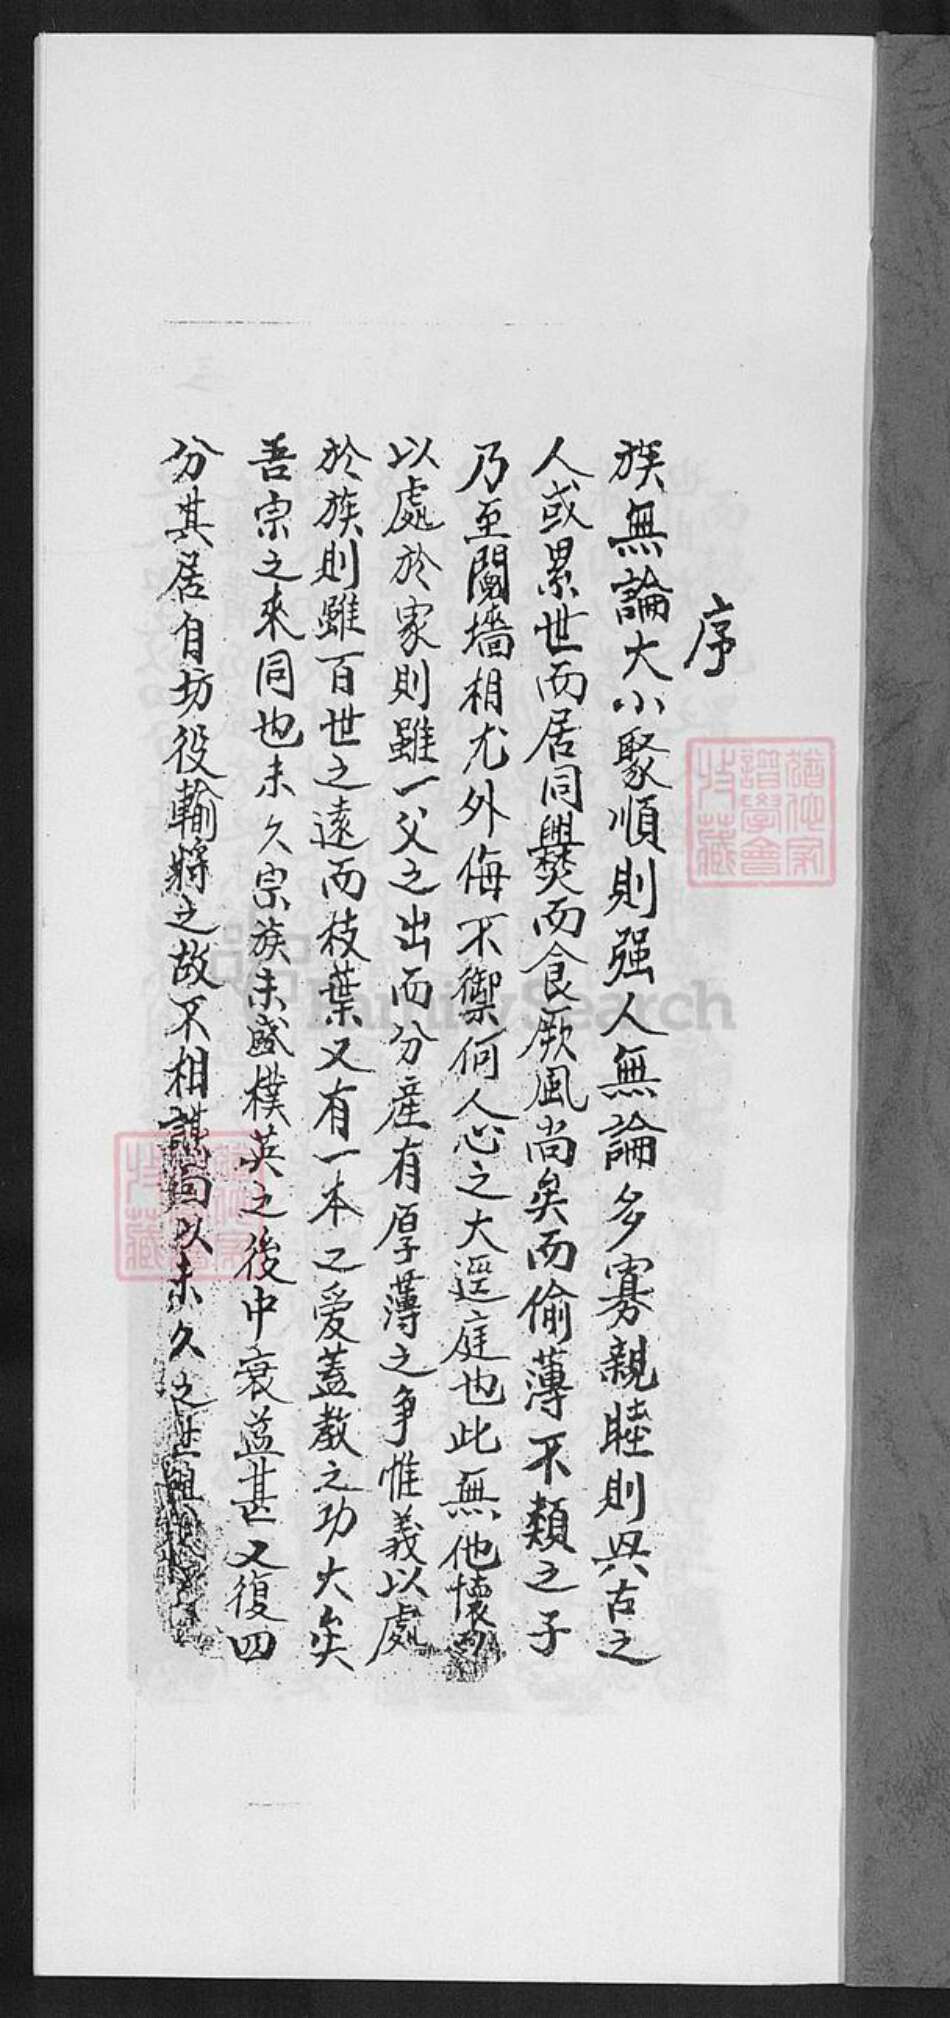 序
族無論大小聚順則强人無論多寡親睦則興古之
人或累世而居同㸑而食厥風尚矣而偷薄不類之子
乃至鬩墻相尤外侮不禦何人心之大逕庭也此無他懷利
以處於家則雖一父之出而分產有厚薄之争惟義以處
於族則雖百世之遠而枝葉又有一本之愛蓋教之功大矣
吾宗之來同也未久宗族未盛樸英之後中衰益甚又復四
分其居自坊役輸將之故不相謀而以未久之世
猶他家譜學會收藏
猶他家譜學會收藏
FamilySearch